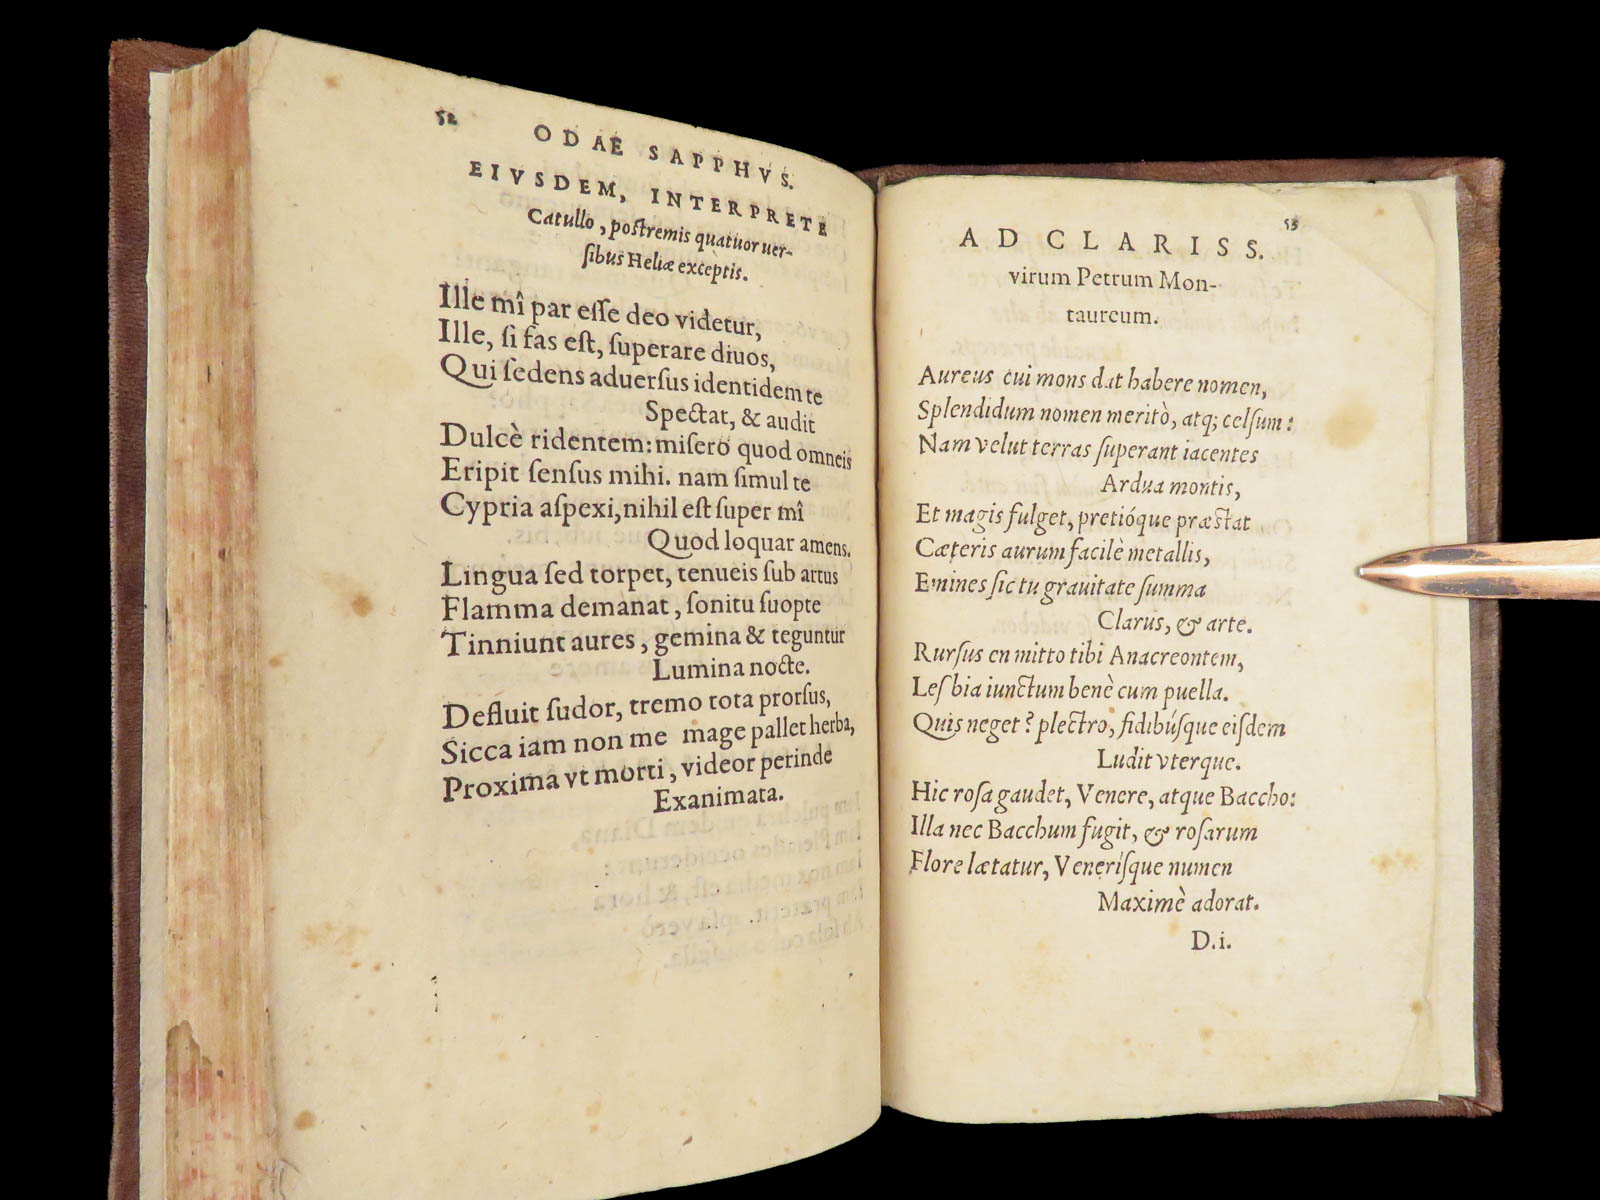 52
ODAE SAPPHVS.
EIVSDEM, INTERPRETE
Catullo, postremis quatuor uer-
sibus Heliæ exceptis.
Ille mî par eſſe deo videtur,
Ille, ſi fas eſt, ſuperare diuos,
Qui ſedens aduerſus identidem te
Spectat, & audit
Dulcè ridentem: miſero quod omneis
Eripit ſenſus mihi. nam ſimul te
Cypria aſpexi, nihil eſt ſuper mî
Quod loquar amens.
Lingua ſed torpet, tenueis ſub artus
Flamma demanat, ſonitu ſuopte
Tinniunt aures, gemina & teguntur
Lumina nocte.
Defluit ſudor, tremo tota prorſus,
Sicca iam non me mage pallet herba,
Proxima vt morti, videor perinde
Exanimata.
53
AD CLARISS.
virum Petrum Mon-
taureum.
Aureus cui mons dat habere nomen,
Splendidum nomen meritò, atq; celſum:
Nam velut terras ſuperant iacentes
Ardua montis,
Et magis fulget, pretióque præſtat
Cæteris aurum facilè metallis,
Emines ſic tu grauitate ſumma
Clarus, & arte.
Rurſus en mitto tibi Anacreontem,
Leſbia iunctum benè cum puella.
Quis neget? plectro, fidibúſque eiſdem
Ludit vterque.
Hic roſa gaudet, Venere, atque Baccho:
Illa nec Bacchum fugit, & roſarum
Flore lætatur, Veneriſque numen
Maximè adorat.
D.i.